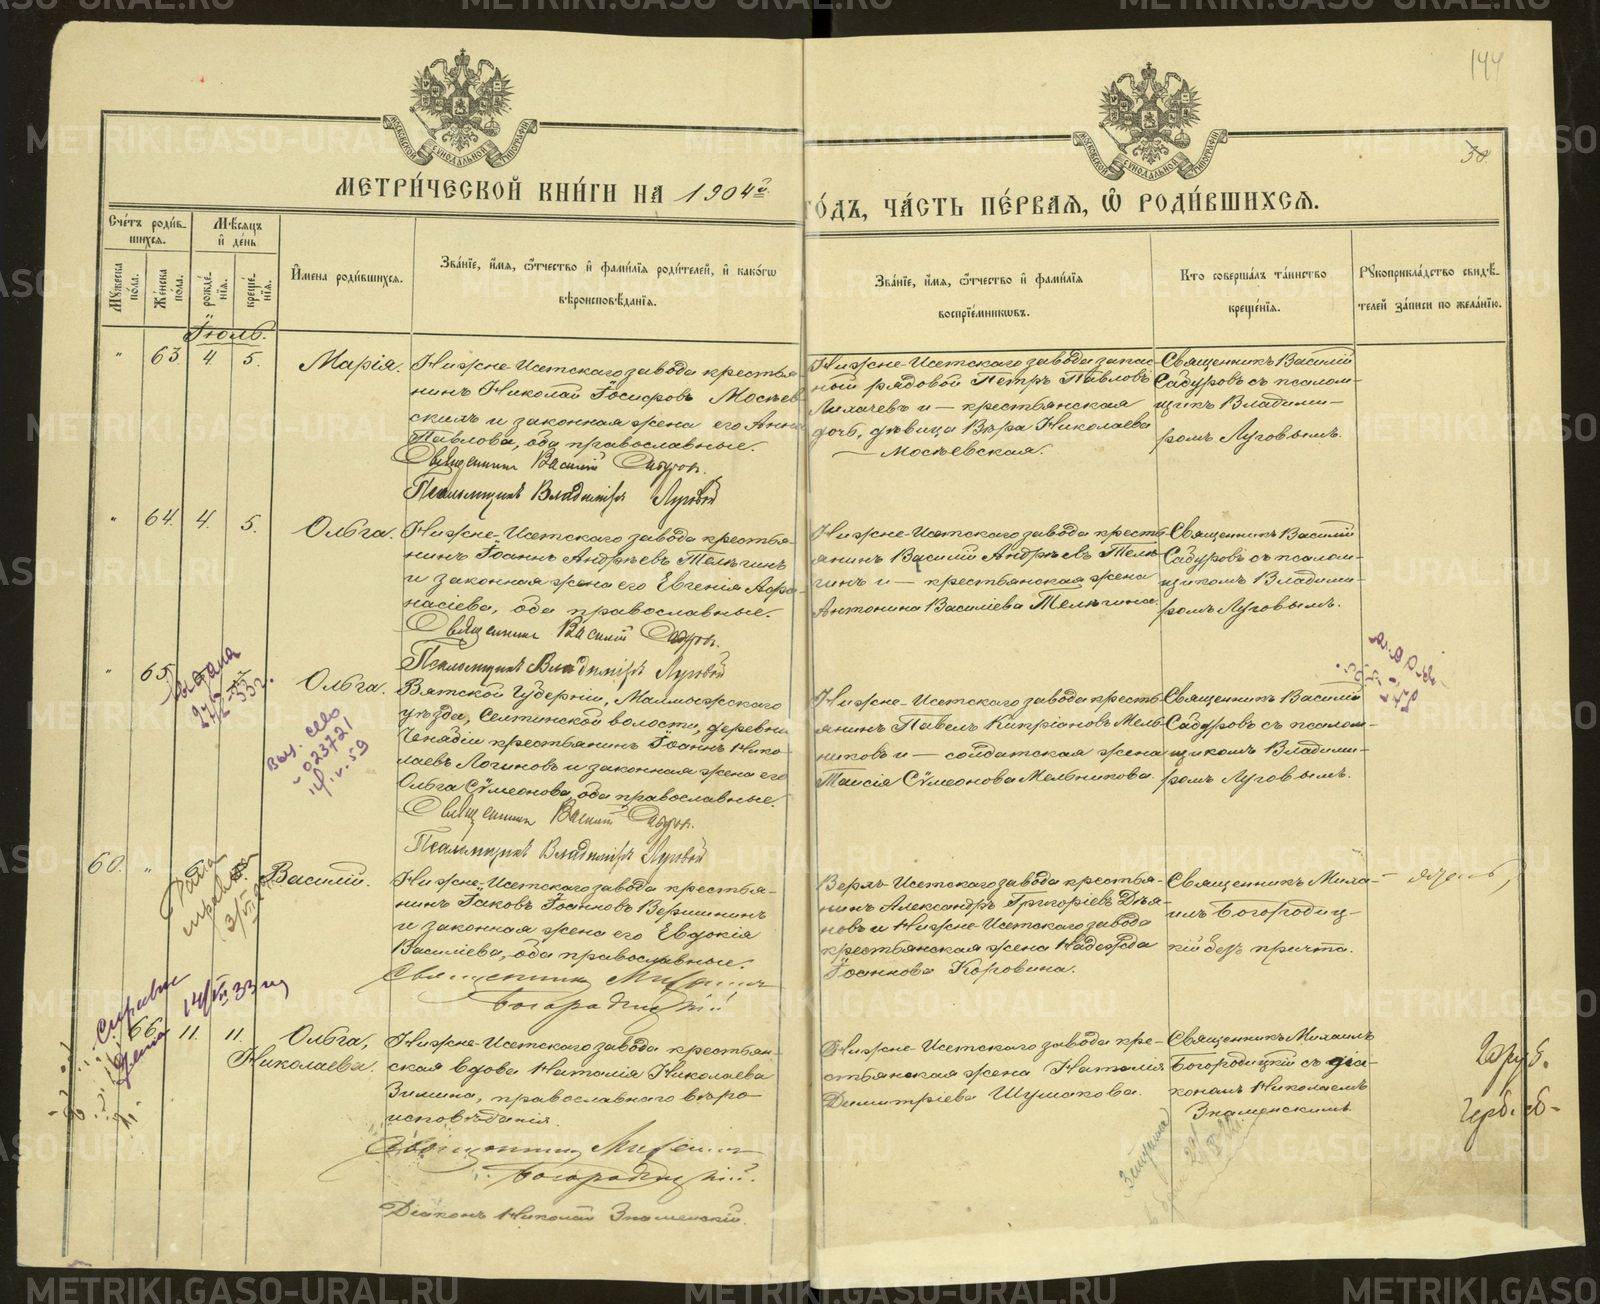 METRIKI.GASO-URAL.RU
144
30.
МОСКОВСКОЙ СИНОДАЛЬНОЙ ТИПОГРАФІИ
МОСКОВСКОЙ СИНОДАЛЬНОЙ ТИПОГРАФІИ
МЕТРИ́ЧЕСКОЙ КНИ́ГИ НА 1904й
ГО́ДЪ, ЧА́СТЬ ПЕ́РВАЯ, Ѽ РОДИ́ВШИХСЯ.
Сче́тъ роди́вшихся.
Мѣ́сяцъ и҆ де́нь
И҆мена роди́вшихся.
Зва́нїе, и҆́мя, ѻ҆́тчество и҆ фами́лїя роди́телей, и҆ како́гѡ вѣроисповѣ́данїя.
Зва́нїе, и҆́мя, ѻ҆́тчество и҆ фами́лїя воспрїе́мниковъ.
Кто соверша́лъ та́инство креще́нїя.
Рꙋкоприкла́дство свидѣ́телей за́писи по жела́нїю.
Мꙋ́жеска по́ла.
Же́нска по́ла.
рожде́нїя.
креще́нїя.
Іюль.
" 63 4 5. Марія.
Нижне-Исетскаго завода крестья-
нинъ Николай Іосифовъ Мосѣев
скихъ и законная жена его Анна
Павлова, оба православные.
Священникъ Василій Сабуровъ.
Псаломщикъ Владиміръ Луговой
Нижне-Исетскаго завода запас-
ный рядовой Петръ Павловъ
Лихачевъ и — крестьянская
дочь, дѣвица Вѣра Николаева
Мосѣевская.
Священникъ Василій
Сабуровъ съ псалом-
щик Владими-
ромъ Луговымъ.
" 64. 4. 5. Ольга.
Нижне-Исетскаго завода крестья-
нинъ Іоаннъ Андрѣевъ Телѣгинъ
и законная жена его Евгенія Афа-
насіева, оба православные.
Священникъ Василій Сабуровъ.
Псаломщикъ Владиміръ Луговой
Нижне-Исетскаго завода кресть-
янинъ Василій Андрѣевъ Телѣ-
гинъ и — крестьянская жена
Антонина Василіева Телѣгина.
Священникъ Василій
Сабуровъ съ псалом-
щикомъ Владими-
ромъ Луговымъ.
" 65. Ольга.
Вятской Губерніи, Малмыжскаго
уѣзда, Селтинской волости, деревни
крестьянинъ Іоаннъ Нико-
лаевъ Логиновъ и законная жена его
Ольга Сѵмеонова, оба православные.
Священникъ Василій Сабуровъ.
Псаломщикъ Владиміръ Луговой
Нижне-Исетскаго завода кресть-
янинъ Павелъ Кипріановъ Мель-
никовъ и — солдатская жена
Таисія Сѵмеонова Мельникова.
Священникъ Василій
Сабуровъ съ псалом-
щикомъ Владими-
ромъ Луговымъ.
Выдана
Выч. село
023721
14.V.59
60. " 6. Василій.
Нижне-Исетскаго завода крестья-
нинъ Іаковъ Іоанновъ Вершининъ
и законная жена его Евдокія
Василіева, оба православные.
Священникъ Михаилъ
Богородицкій
Верхъ-Исетскаго завода крестья-
нинъ Александръ Григоріевъ Дѣя-
новъ и Нижне-Исетскаго завода
крестьянская жена Надежда
Іоаннова Коровина.
Священникъ Миха-
илъ Богородиц-
кій безъ причта.
Дана
справка
справка
14/VII 33 г
66. 11. 11. Ольга,
Николаева.
Нижне-Исетскаго завода крестьян-
ская вдова Наталія Николаева
Зимина, православнаго вѣро-
исповѣданія.
Священникъ Михаилъ
Богородицкій.
Діаконъ Николай Знаменскій.
Нижне-Исетскаго завода кре-
стьянская жена Наталія
Димитріева Шушакова.
Священникъ Михаилъ
Богородицкій съ діа-
кономъ Николаемъ
Знаменскимъ.
2 руб.
герб. сб-